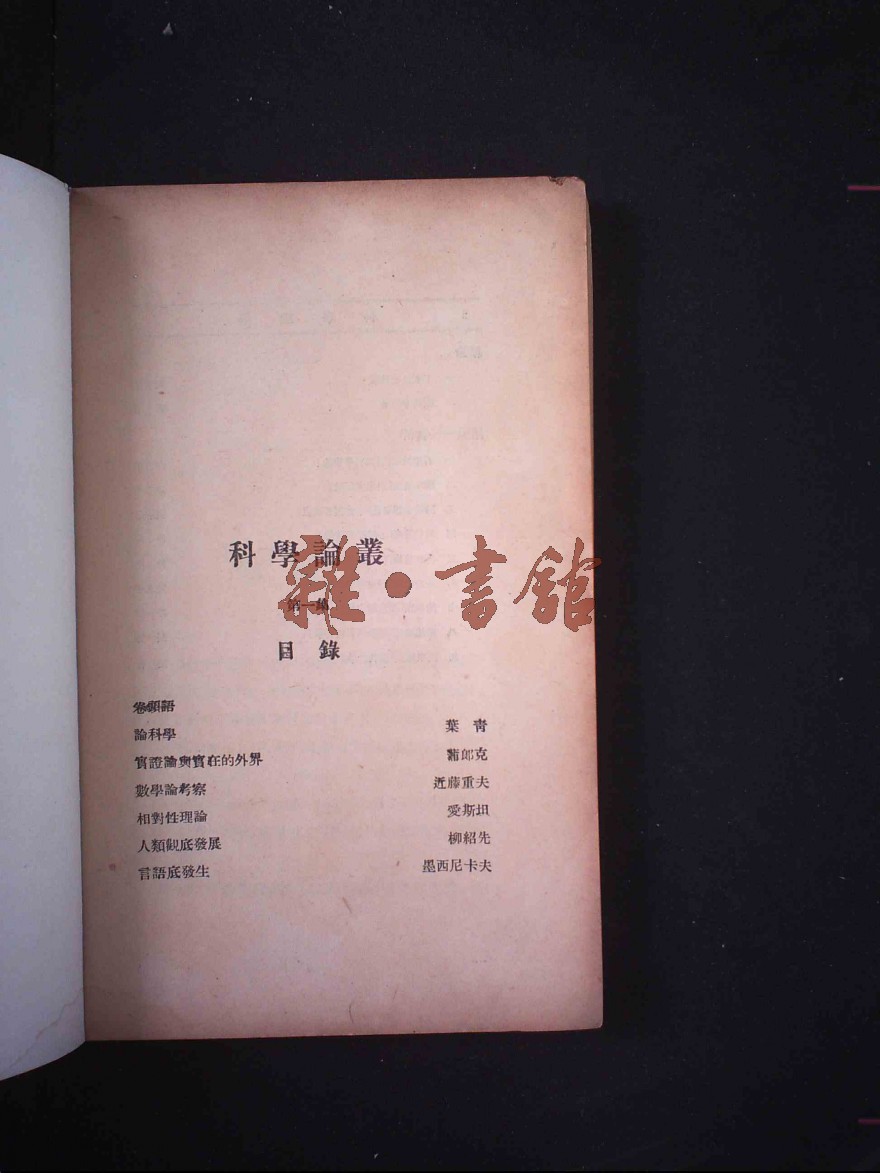 科學論叢
第一編
目錄
卷頭語
論科學 葉青
實證論與實在的外界 蒲郎克
數學論考察 近藤重夫
相對性理論 愛斯坦
人類觀底發展 柳紹先
言語底發生 墨西尼卡夫
雜·書館